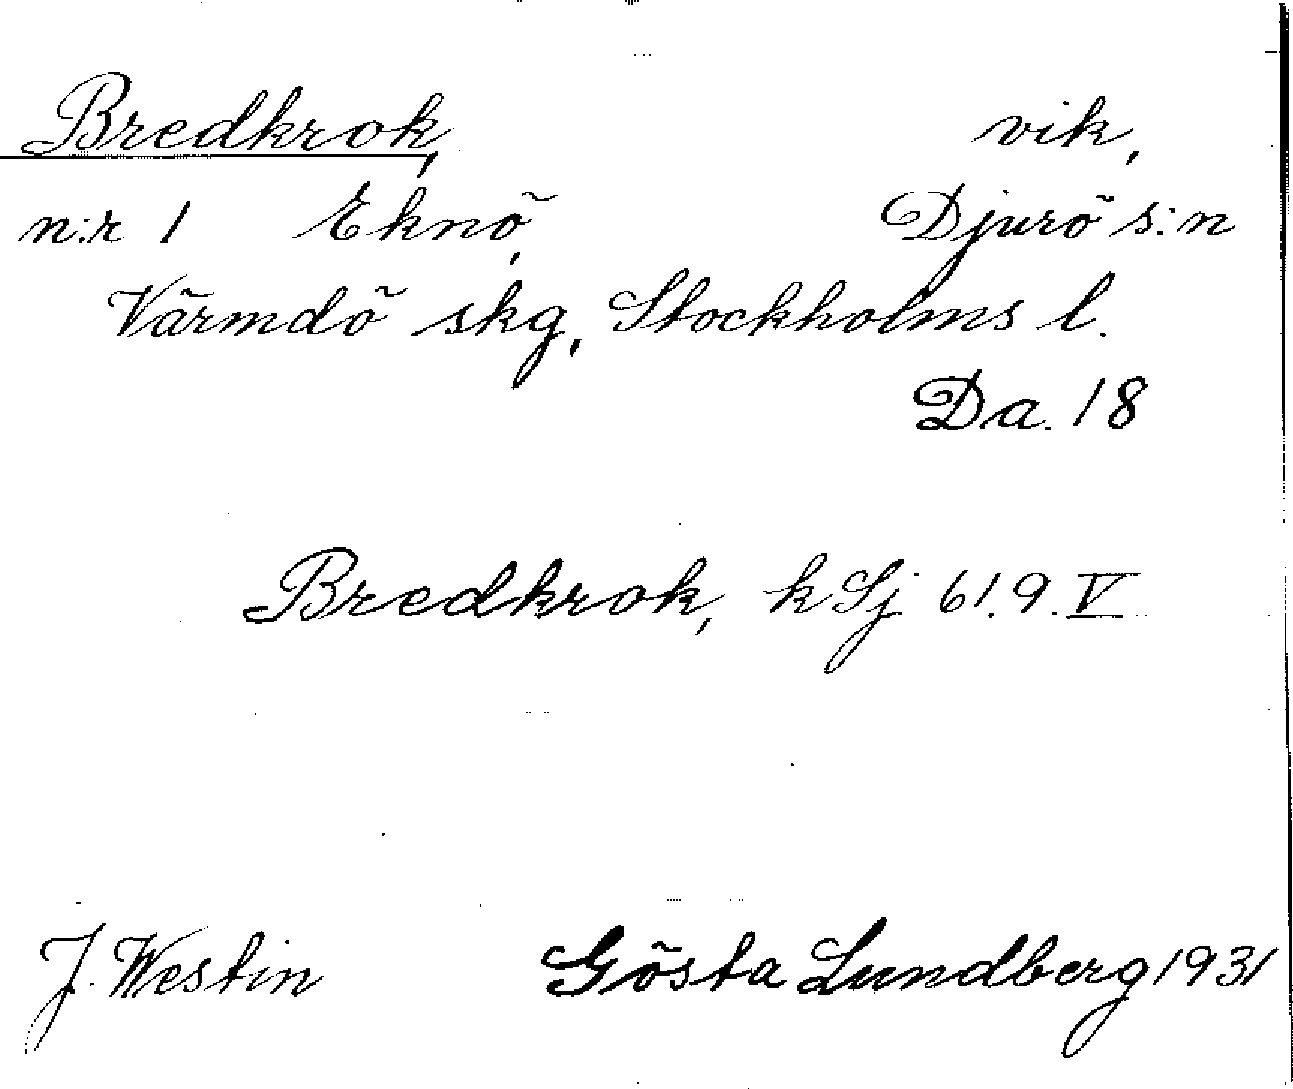 Bredkrok, vik,
n:r 1 Eknö, Djurö s:n
Värmdö skg, Stockholms l.
Da. 18
Bredkrok, k Sj 61.9.V
J. Westin Gösta Lundberg 1931